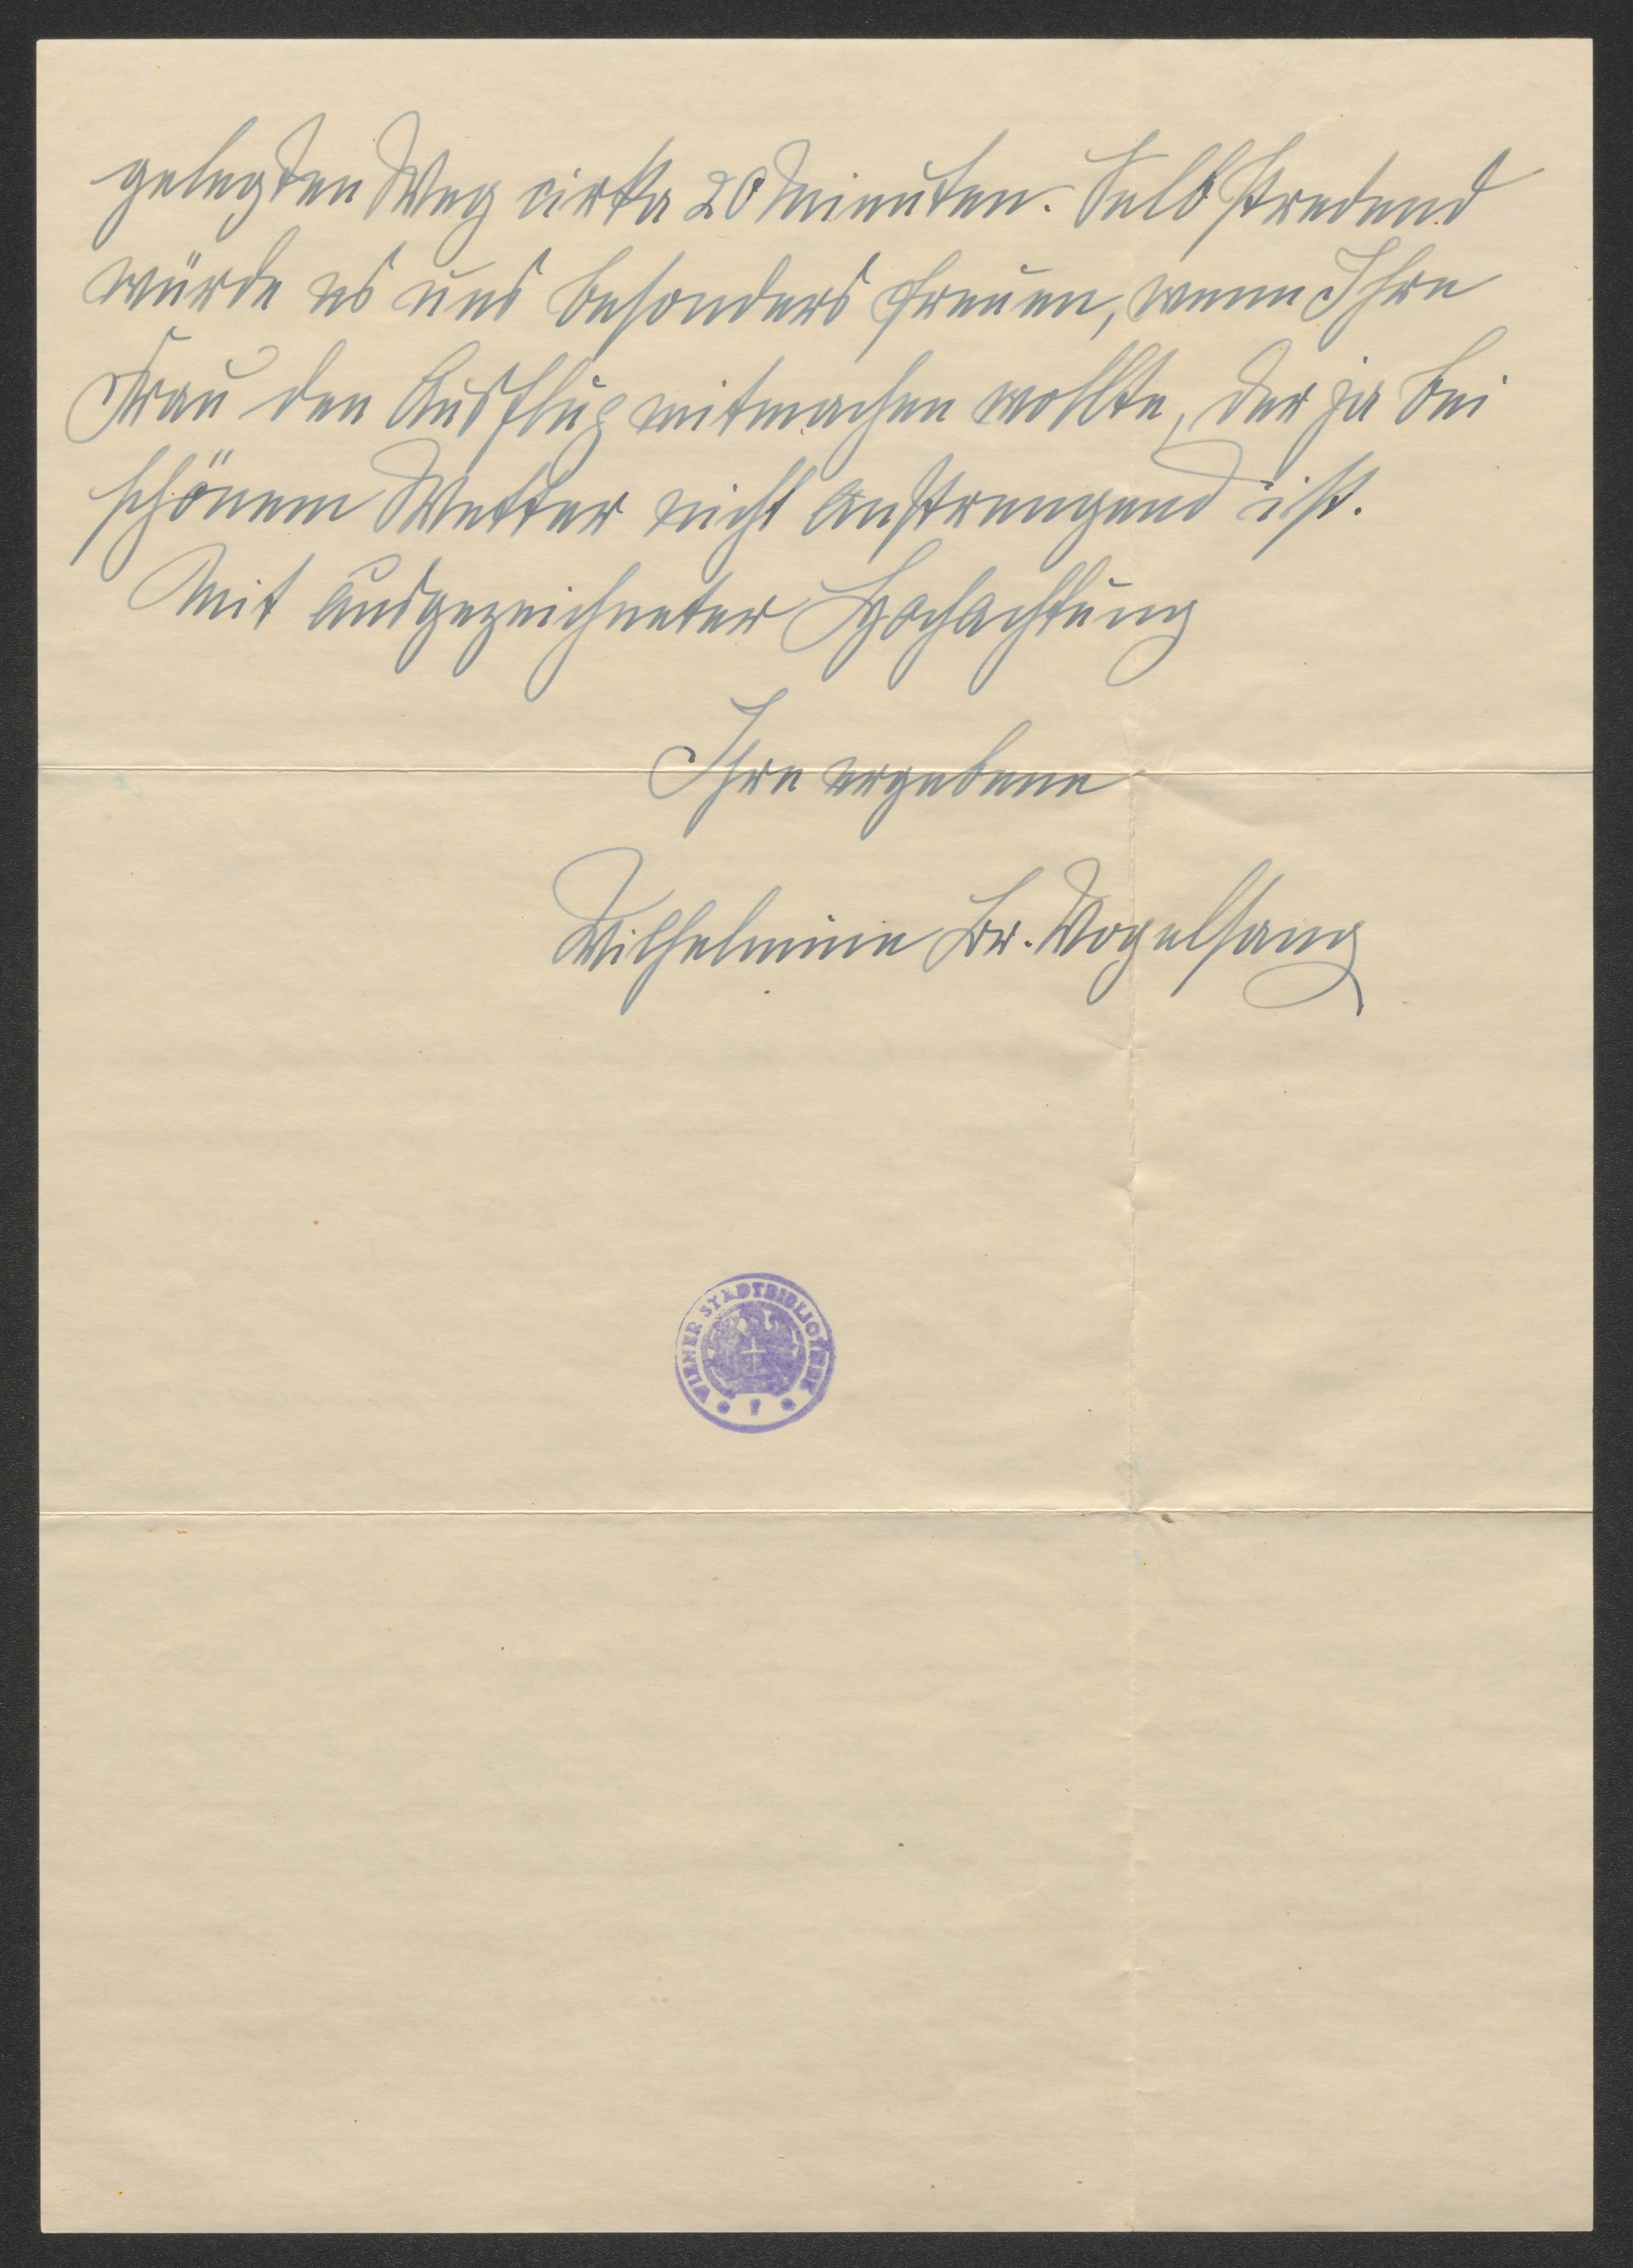 gelegten Weg cirka 20 Minuten. Selbstredend
würde es uns besonders freuen, wenn Ihre
Frau den Ausflug mitmachen wollte, der ja bei
schönem Wetter nicht anstrengend ist.
Mit ausgezeichneter Hochachtung
Ihre ergebene
Wilhelmine Br. Vogelsang
WIENER STADTBIBLIOTHEK